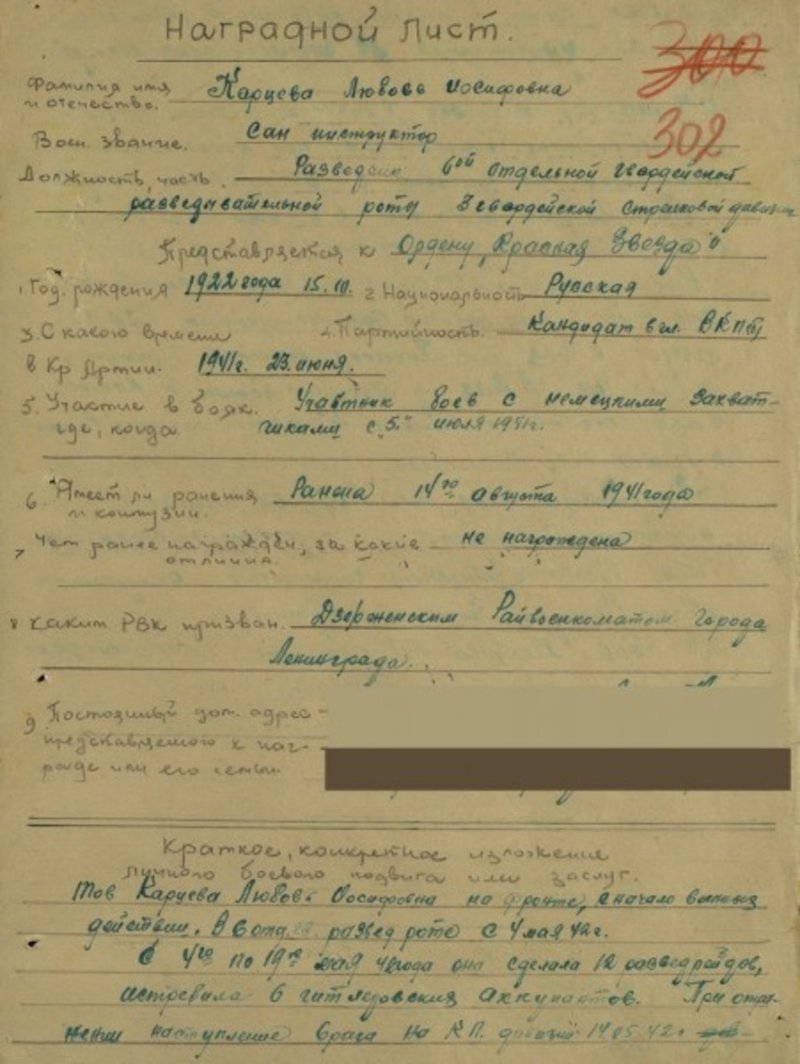 Наградной Лист.
300
Фамилия имя Карцева Любовь Иосифовна
и отечество.
302
Воен. звание. Сан инструктор
Должность, часть. Разведчик 6ой отдельной гвардейской
разведывательной роты 3 гвардейской стрелковой дивизии
Представляется к Ордену „Красная Звезда"
1 Год. рождения 1922 года 15.10. 2 Национальность Русская
3. С какого времени 4. Партийность. Кандидат в чл. ВКП(б)
в Кр Армии. 1941г. 23 июня.
5. Участие в боях. Участник боев с немецкими захват-
где, когда. чиками с 5го июля 1941г.
6. Имеет ли ранения Ранена 14го августа 1941 года
и контузии.
7 Чем ранее награжден, за какие не награждена
отличия.
8 каким РВК призван. Дзержинским Райвоенкоматом города
Ленинграда.
9 Постоянный дом. адрес -
представляемого к наг-
раде или его семьи.
Краткое, конкретное изложение
личного боевого подвига или заслуг.
Тов Карцева Любовь Иосифовна на фронте, с начало военных
действий. В 6 отд. развед роте с 4 мая 42 г.
С 4го по 19го мая 42 года она сделала 12 разведрейдов,
истребила 6 гитлеровских аккупантов. При отра-
жении наступление врага на КП. дивизии 14.05.42.